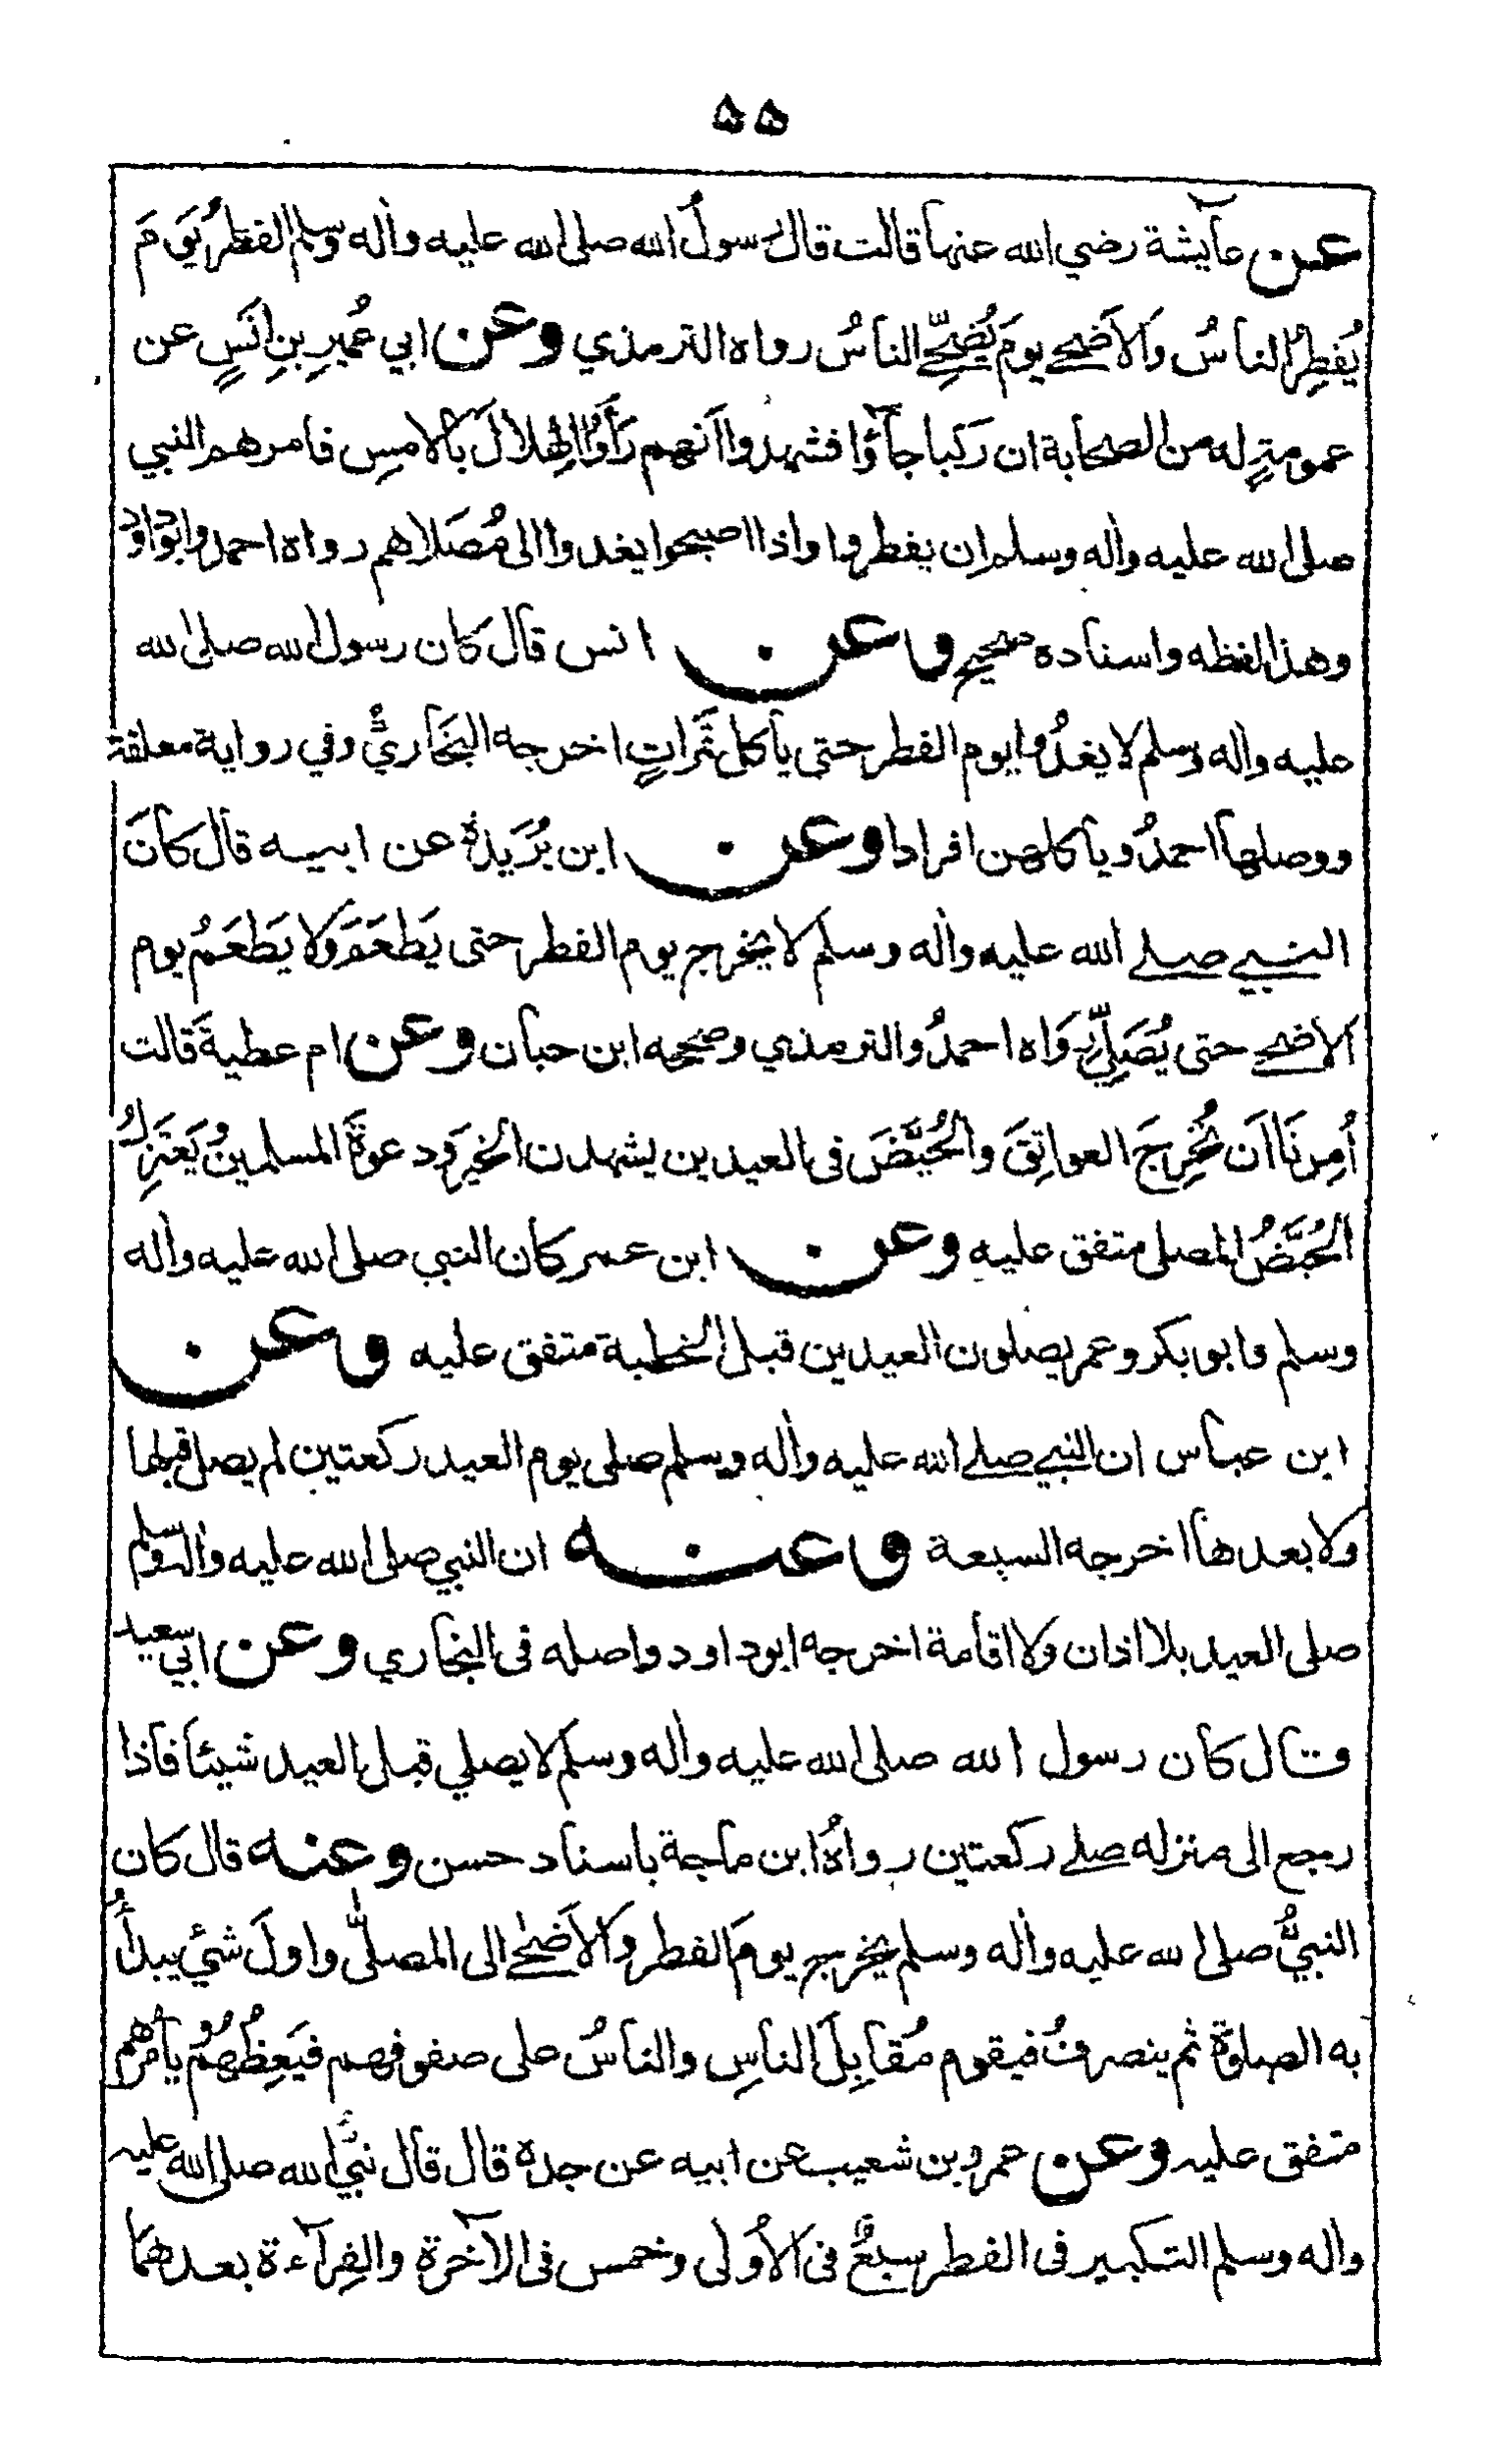 ۵۵
عن عآيشة رضي الله عنها قالت قال رسولُ الله صلى الله عليه واٰله وسلم الفطرُ يَومَ
يُفطِرُ الناسُ وَالاَضحےٰ يومَ يُضَحِّے الناسُ رواه الترمذي وعن ابي عُميرِ بنِ انَسٍ عن
عمومةٍ له من الصحابة ان ركبا جآؤا فشهدوا اَنهم رَأَوُا الهِلالَ بالامسِ فامرهم النبي
صلى الله عليه واٰله وسلم ان يفطروا واذا اصبحوا يغدوا الى مُصَلاهم رواه احمد وابوداود
وهذا لفظه واسناده صحيح وعن انس قال كان رسول الله صلى الله
عليه واٰله وسلم لا يغدُوا يوم الفطر حتى ياكل تَمَراتٍ اخرجه البخاريُّ وفي رواية معلقة
ووصلها احمدُ وياكلهن افرادا وعن ابن بُرَيدةَ عن ابيه قال كانَ
النبي صلے الله عليه واٰله وسلم لا يخرج يوم الفطر حتى يَطعَمَ وَلا يَطعَمُ يوم
الاضحے حتى يُصَلِّيَ رَوَاه احمدُ والترمذي وصححه ابن حبان وعن ام عطيةَ قالت
اُمِرنَا اَن نُخرِجَ العواتِقَ والحُيَّضَ فى العيدين يشهدن الخيرَ ود عوةَ المسلمين ويَعتَزِلُ
الحُيَّضُ المصلى متفق عليه وعن ابن عمر كان النبي صلى الله عليه واٰله
وسلم وابو بكر وعمر يصلون العيدين قبل الخطبة متفق عليه وعن
ابن عباس ان النبي صلے الله عليه واٰله وسلم صلى يوم العيد ركعتين لم يصل قبلها
ولا بعدها اخرجه السبعة وعنه ان النبي صلى الله عليه واٰله وسلم
صلى العيد بلا اذان ولا اقامة اخرجه ابو داود واصله فى البخاري وعن ابي سعيد
قال كان رسول الله صلى الله عليه واٰله وسلم لا يصلي قبل العيد شيئا فاذا
رجع الى منزله صلے ركعتين رواهُ ابن ماجة باسناد حسن وعنه قال كان
النبيُّ صلى الله عليه واٰله وسلم يخرج يومَ الفطر وَالاَضحٰے الى المصلّٰى واولَ شئ يبدأُ
به الصلوةَ ثم ينصرفُ فيقوم مُقابِلَ الناسِ والناسُ على صفوفهم فيَعِظُهُم ويامُرُهُم
متفق عليه وعن عمرو بن شعيب عن ابيه عن جده قال قال نبيُّ الله صلى الله عليه
واله وسلم التكبير فى الفطر سبعٌ فى الاُولى وخمس فى الاٰخرة والقِرآءة بعدهما